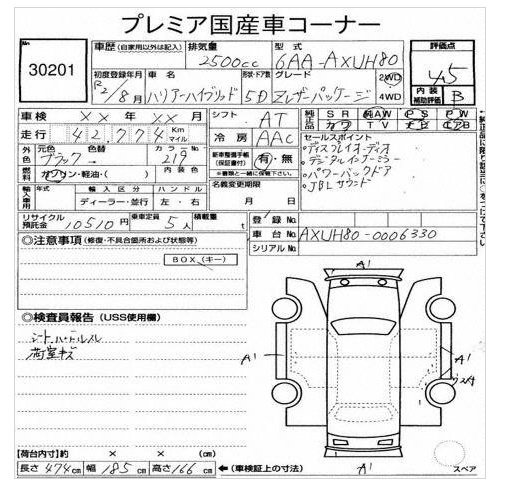 プレミア国産車コーナー
30201
車歴(自家用以外は記入) 排気量 2500cc 型式 6AA-AXUH80 評価点 4.5
初度登録年月 R2/8月 車名 ハリアーハイブリッド 形状・ドア数 5D グレード Zレザーパッケージ 2WD 4WD 内装補助評価 B
車検 ×× 年 ×× 月 シフト AT 純正品 SR AW PS PW
走行 42,774 Km マイル 冷房 AAC カワ TV ナビ エアB
外色 元色 ブラック 色替 カラーNo. 219 新車整備手帳(保証書付) 有・無 セールスポイント
・ディスプレイオーディオ
・デジタルインナーミラー
・パワーバックドア
・JBLサウンド
燃料 ガソリン・軽油・( ) 内装色 ※書類と一緒に保管下さい。
輸入車用 年式 輸入区分 ハンドル 名義変更期限
ディーラー・並行 左・右 月 日
リサイクル預託金 10510円 乗車定員 5人 積載量 t 登録No.
車台No. AXUH80-0006330
シリアルNo.
◎注意事項(修復・不具合箇所および状態等)
BOX.(キー)
◎検査員報告(USS使用欄)
シートハンドルスレ
荷室キズ
A1
A1
A1
A1
【荷台内寸】約 × × (cm)
長さ 474cm 幅 185cm 高さ 166cm ←(車検証上の寸法)
スペア